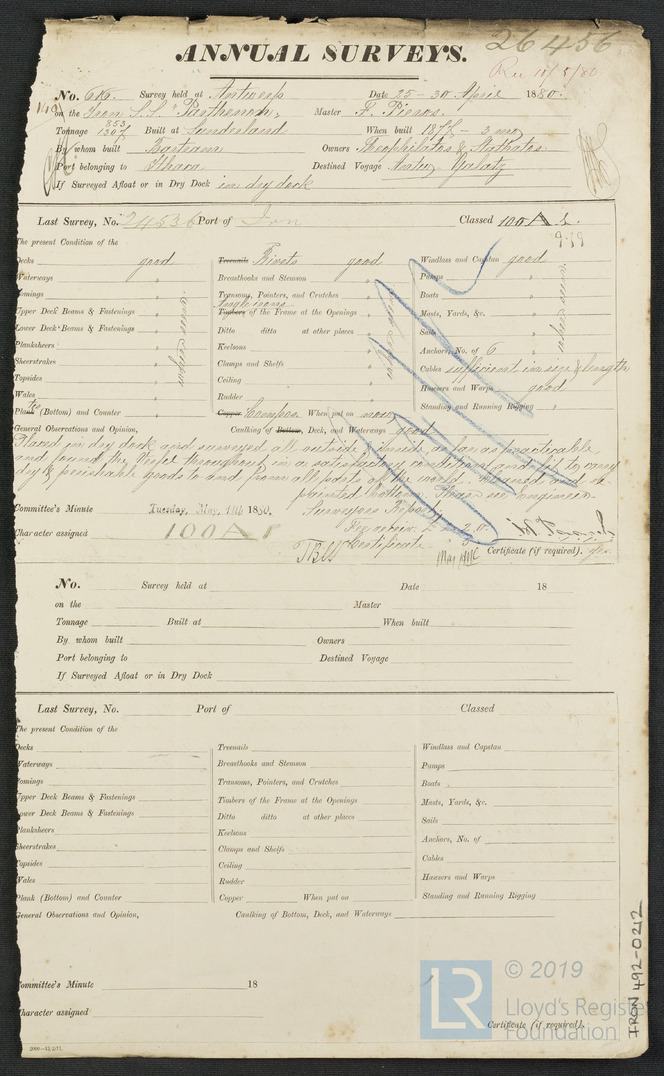 26456
ANNUAL SURVEYS.
Rec 10/5/80
No. 616. Survey held at Antwerp Date 25-30 April 1880.
on the Iron S.S. "Parthenon" Master F. Pieros.
Tonnage 853 1307 Built at Sunderland When built 1877 - 3 mo
By whom built Bartram Owners Theophilatos & Stathatos
Port belonging to Ithaca Destined Voyage Galatz
If Surveyed Afloat or in Dry Dock in dry dock
Last Survey, No. 24536 Port of Classed 100 A 1.
9.79
The present Condition of the
Decks good Treenails Rivets good Windlass and Capstan good
Waterways " Breasthooks and Stemson " Pumps "
Comings " Transoms, Pointers, and Crutches " Boats "
Upper Deck Beams & Fastenings " Timbers of the Frame at the Openings " Masts, Yards, &c. "
Lower Deck Beams & Fastenings " Ditto ditto at other places " Sails "
Planksheers " Keelsons " Anchors, No. of 6 "
Sheerstrakes " Clamps and Shelfs " Cables sufficient in size & length
Topsides " Ceiling " Hawsers and Warps good
Wales " Rudder " Standing and Running Rigging "
Plank (Bottom) and Counter " Copper Compos When put on now
General Observations and Opinion, Caulking of Bottom, Deck, and Waterways good
Placed in dry dock and surveyed all outside, inside as far as practicable
and found the Vessel throughout in a satisfactory condition and fit to carry
dry & perishable goods to and from all parts of the world. Cleaned and
painted bottom.
Committee's Minute Tuesday, May 11th 1880. Surveyors Report
Character assigned 100A1
Certificate
Certificate (if required). yes
No. Survey held at Date 18
on the Master
Tonnage Built at When built
By whom built Owners
Port belonging to Destined Voyage
If Surveyed Afloat or in Dry Dock
Last Survey, No. Port of Classed
The present Condition of the
Decks Treenails Windlass and Capstan
Waterways Breasthooks and Stemson Pumps
Comings Transoms, Pointers, and Crutches Boats
Upper Deck Beams & Fastenings Timbers of the Frame at the Openings Masts, Yards, &c.
Lower Deck Beams & Fastenings Ditto ditto at other places Sails
Planksheers Keelsons Anchors, No. of
Sheerstrakes Clamps and Shelfs Cables
Topsides Ceiling Hawsers and Warps
Wales Rudder Standing and Running Rigging
Plank (Bottom) and Counter Copper When put on
General Observations and Opinion, Caulking of Bottom, Deck, and Waterways
Committee's Minute 18
Character assigned
Certificate (if required).
IRON 492-0212
LR © 2019
Lloyd's Register
Foundation